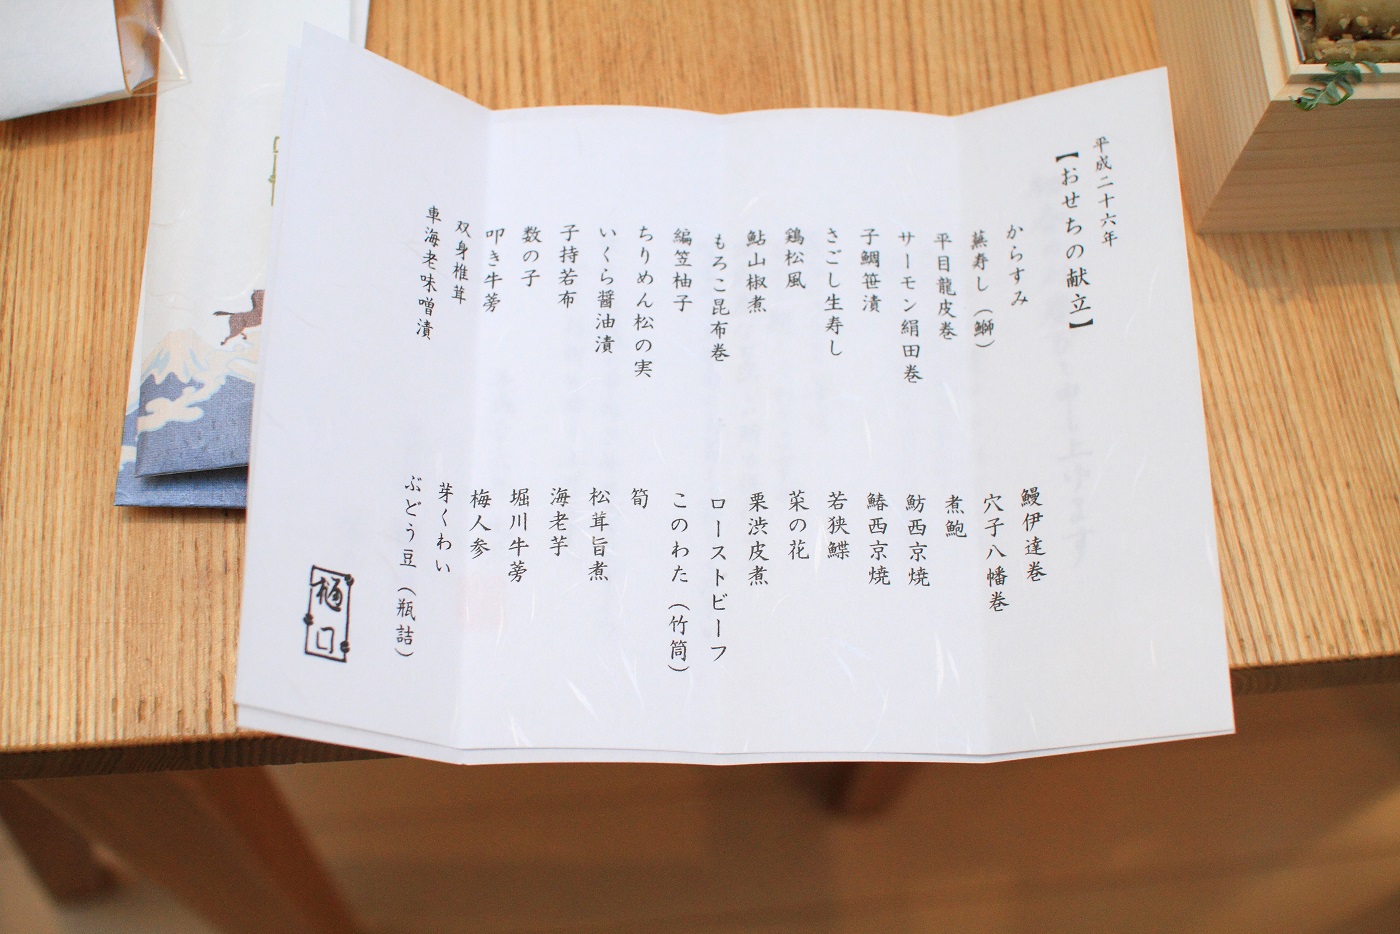 平成二十六年
【おせちの献立】
からすみ
蕪寿し（鰤）
平目龍皮巻
サーモン絹田巻
子鯛笹漬
さごし生寿し
鶏松風
鮎山椒煮
もろこ昆布巻
編笠柚子
ちりめん松の実
いくら醤油漬
子持若布
数の子
叩き牛蒡
双身椎茸
車海老味噌漬
鰻伊達巻
穴子八幡巻
煮鮑
魴西京焼
鰆西京焼
若狭鰈
菜の花
栗渋皮煮
ローストビーフ
このわた（竹筒）
筍
松茸旨煮
海老芋
堀川牛蒡
梅人参
芽くわい
ぶどう豆（瓶詰）
樋口